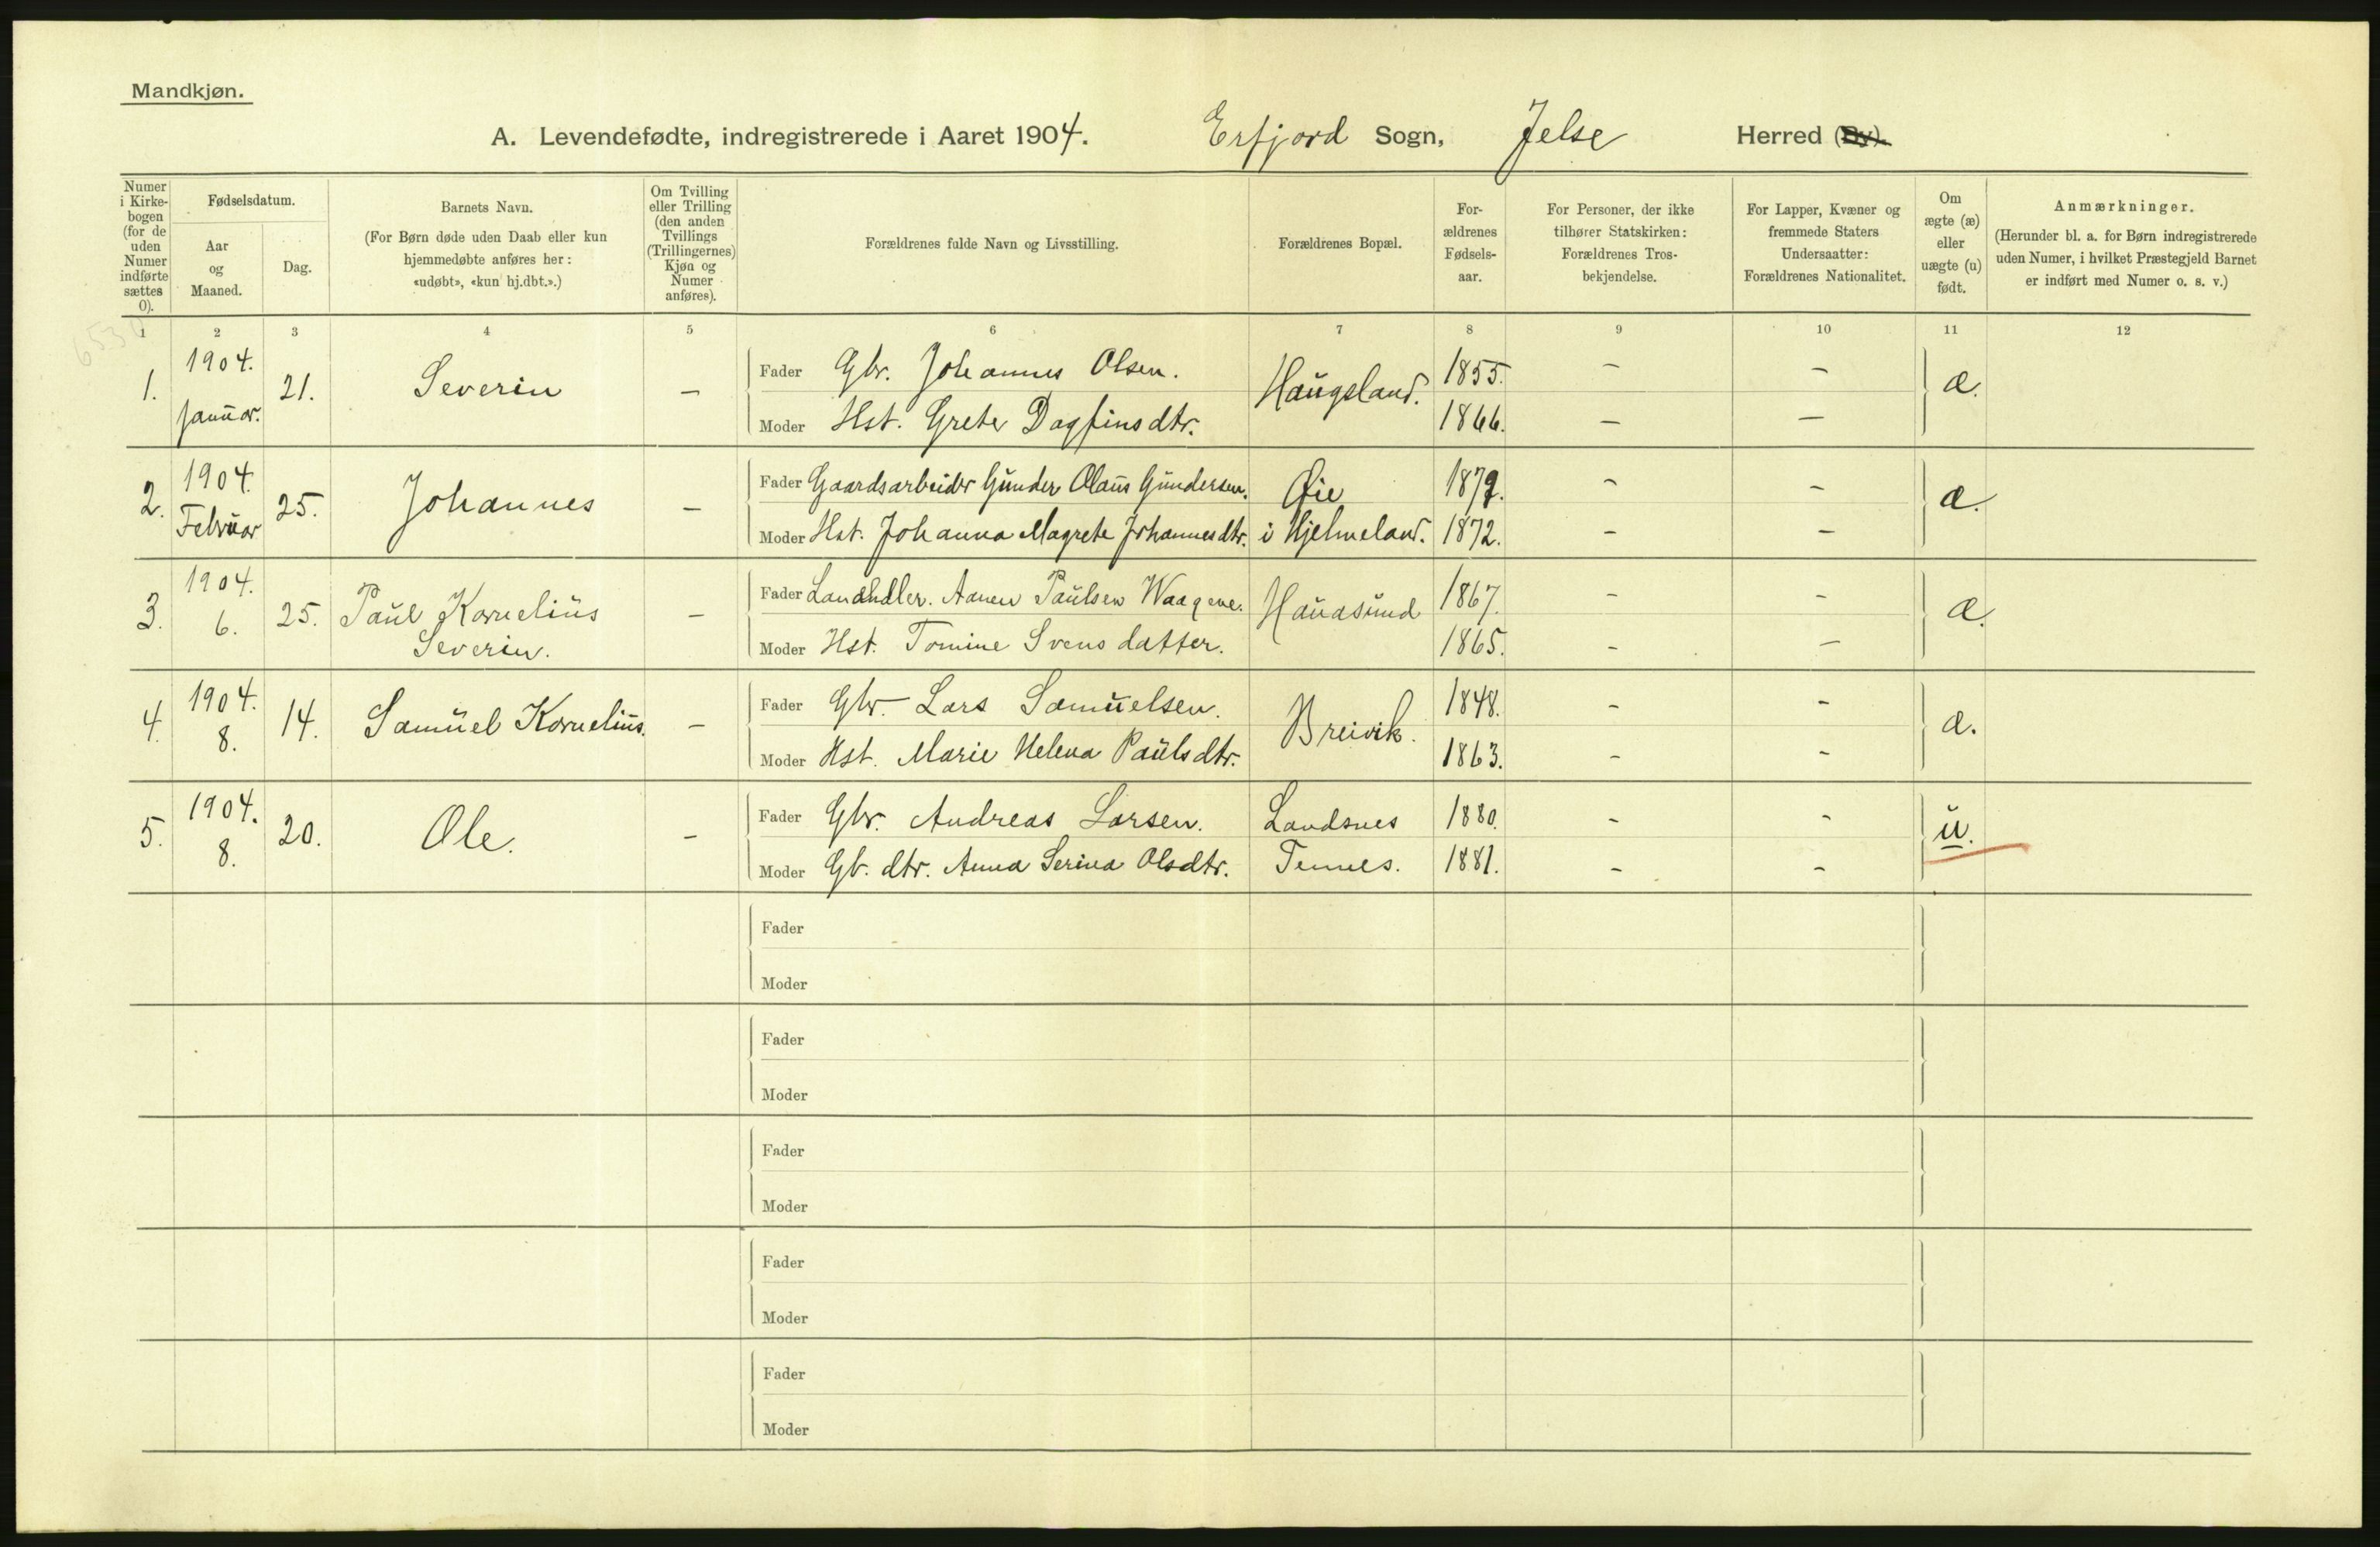 Mandkjøn.
A. Levendefødte, indregistrerede i Aaret 1904. Erfjord Sogn, Jelse Herred (By).
Numer i Kirkebogen (for de uden Numer indførte sættes 0).
Fødselsdatum.
Aar og Maaned.
Dag.
Barnets Navn.
(For Børn døde uden Daab eller kun
hjemmedøbte anføres her:
«udøbt», «kun hj.dbt.».)
Om Tvilling
eller Trilling
(den anden
Tvillings
(Trillingernes)
Kjøn og
Numer
anføres).
Forældrenes fulde Navn og Livsstilling.
Forældrenes Bopæl.
For-
ældrenes
Fødsels-
aar.
For Personer, der ikke
tilhører Statskirken:
Forældrenes Tros-
bekjendelse.
For Lapper, Kvæner og
fremmede Staters
Undersaatter:
Forældrenes Nationalitet.
Om
ægte (æ)
eller
uægte (u)
født.
Anmærkninger.
(Herunder bl. a. for Børn indregistrerede
uden Numer, i hvilket Præstegjeld Barnet
er indført med Numer o. s. v.)
1 2 3 4 5 6 7 8 9 10 11 12
1. 1904. Januar. 21. Severin –
Fader Gbr. Johannes Olsen. Haugsland. 1855. – – æ.
Moder Hst. Grete Dagfinsdtr. 1866. – –
2. 1904. Februar 25. Johannes –
Fader Gaardsarbeider Gunder Olaus Gundersen. Øie 1879. – – æ.
Moder Hst. Johanna Magrete Johannesdtr. i Hjelmeland. 1872. – –
3. 1904. 6. 25. Paul Kornelius
Severin. –
Fader Landhdler. Aanen Paulsen Waagene. Hauasund 1867. – – æ.
Moder Hst. Tomine Svensdatter. 1865. – –
4. 1904. 8. 14. Samuel Kornelius. –
Fader Gbr. Lars Samuelsen. Breivik. 1848. – – æ.
Moder Hst. Marie Helena Paulsdtr. 1863. – –
5. 1904. 8. 20. Ole. –
Fader Gbr. Andreas Larsen. Landsnes 1880. – – u.
Moder Gb. dtr. Anna Serina Olsdtr. Tennes. 1881. – –
Fader
Moder
Fader
Moder
Fader
Moder
Fader
Moder
Fader
Moder